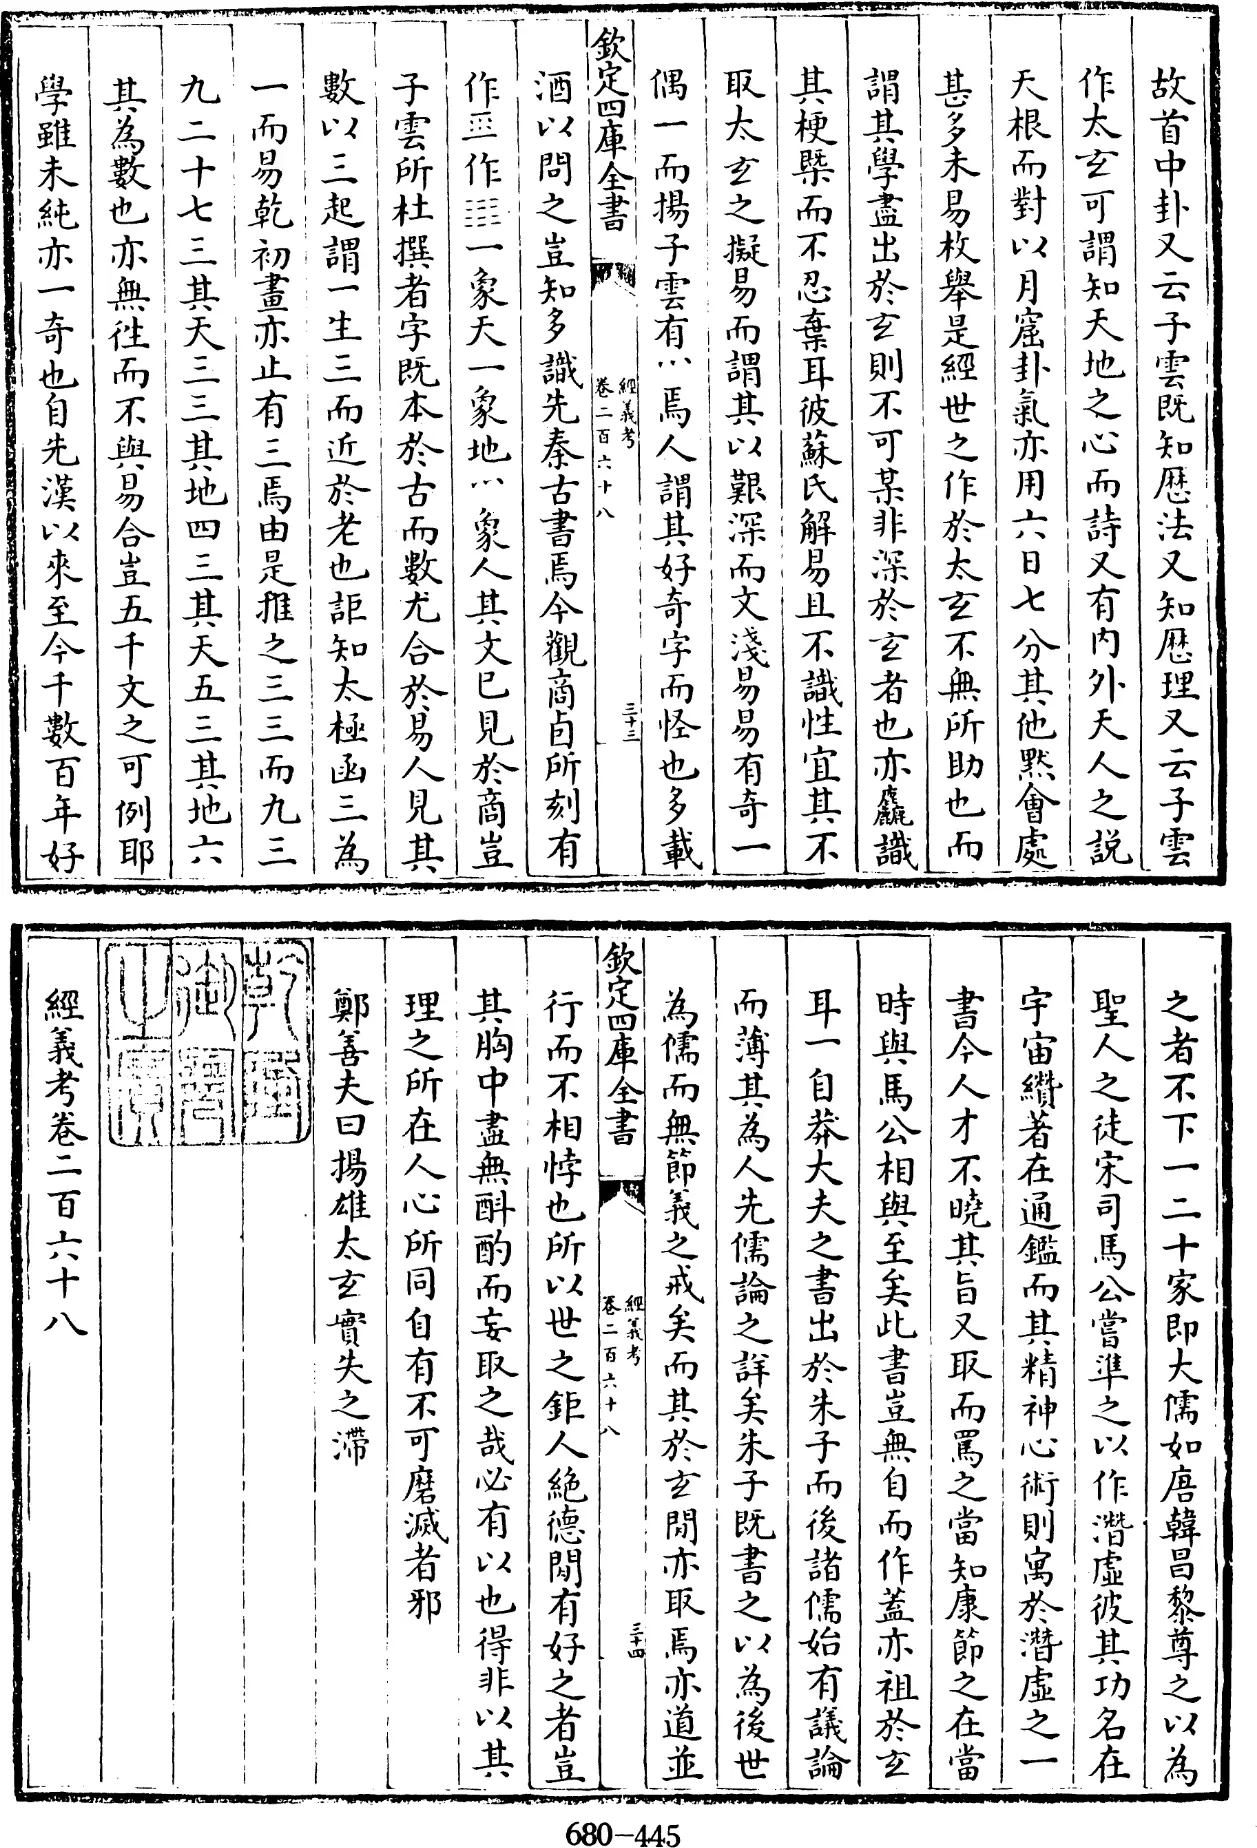 故首中卦又云子雲既知歷法又知歷理又云子雲
作太玄可謂知天地之心而詩又有内外天人之說
天根而對以月窟卦氣亦用六日七分其他黙會處
甚多未易枚舉是經世之作於太玄不無所助也而
謂其學盡出於玄則不可某非深於玄者也亦麤識
其梗槩而不忍棄耳彼蘇氏解易且不識性宜其不
取太玄之擬易而謂其以艱深而文淺易易有奇一
偶一而揚子雲有𠁼焉人謂其好奇字而怪也多載
欽定四庫全書
經義考
卷二百六十八
三十三
酒以問之豈知多識先秦古書焉今觀商卣所刻有
作𝌆作一象天一象地象人其文已見於商豈
子雲所杜撰者字既本於古而數尤合於易人見其
數以三起謂一生三而近於老也詎知太極函三為
一而易乾初畫亦止有三焉由是推之三三而九三
九二十七三其天三三其地四三其天五三其地六
其為數也亦無徃而不與易合豈五千文之可例耶
學雖未純亦一奇也自先漢以來至今千數百年好
之者不下一二十家即大儒如唐韓昌黎尊之以為
聖人之徒宋司馬公嘗準之以作潛虛彼其功名在
宇宙纘著在通鑑而其精神心術則寓於潛虛之一
書今人才不曉其旨又取而罵之當知康節之在當
時與馬公相與至矣此書豈無自而作蓋亦祖於玄
耳一自莽大夫之書出於朱子而後諸儒始有議論
而薄其為人先儒論之詳矣朱子既書之以為後世
為儒而無節義之戒矣而其於玄間亦取焉亦道並
欽定四庫全書
經義考
卷二百六十八
三十四
行而不相悖也所以世之鉅人絶德間有好之者豈
其胸中盡無斟酌而妄取之哉必有以也得非以其
理之所在人心所同自有不可磨滅者邪
鄭善夫曰揚雄太玄實失之滯
乾隆御覽之寶
經義考卷二百六十八
680-445